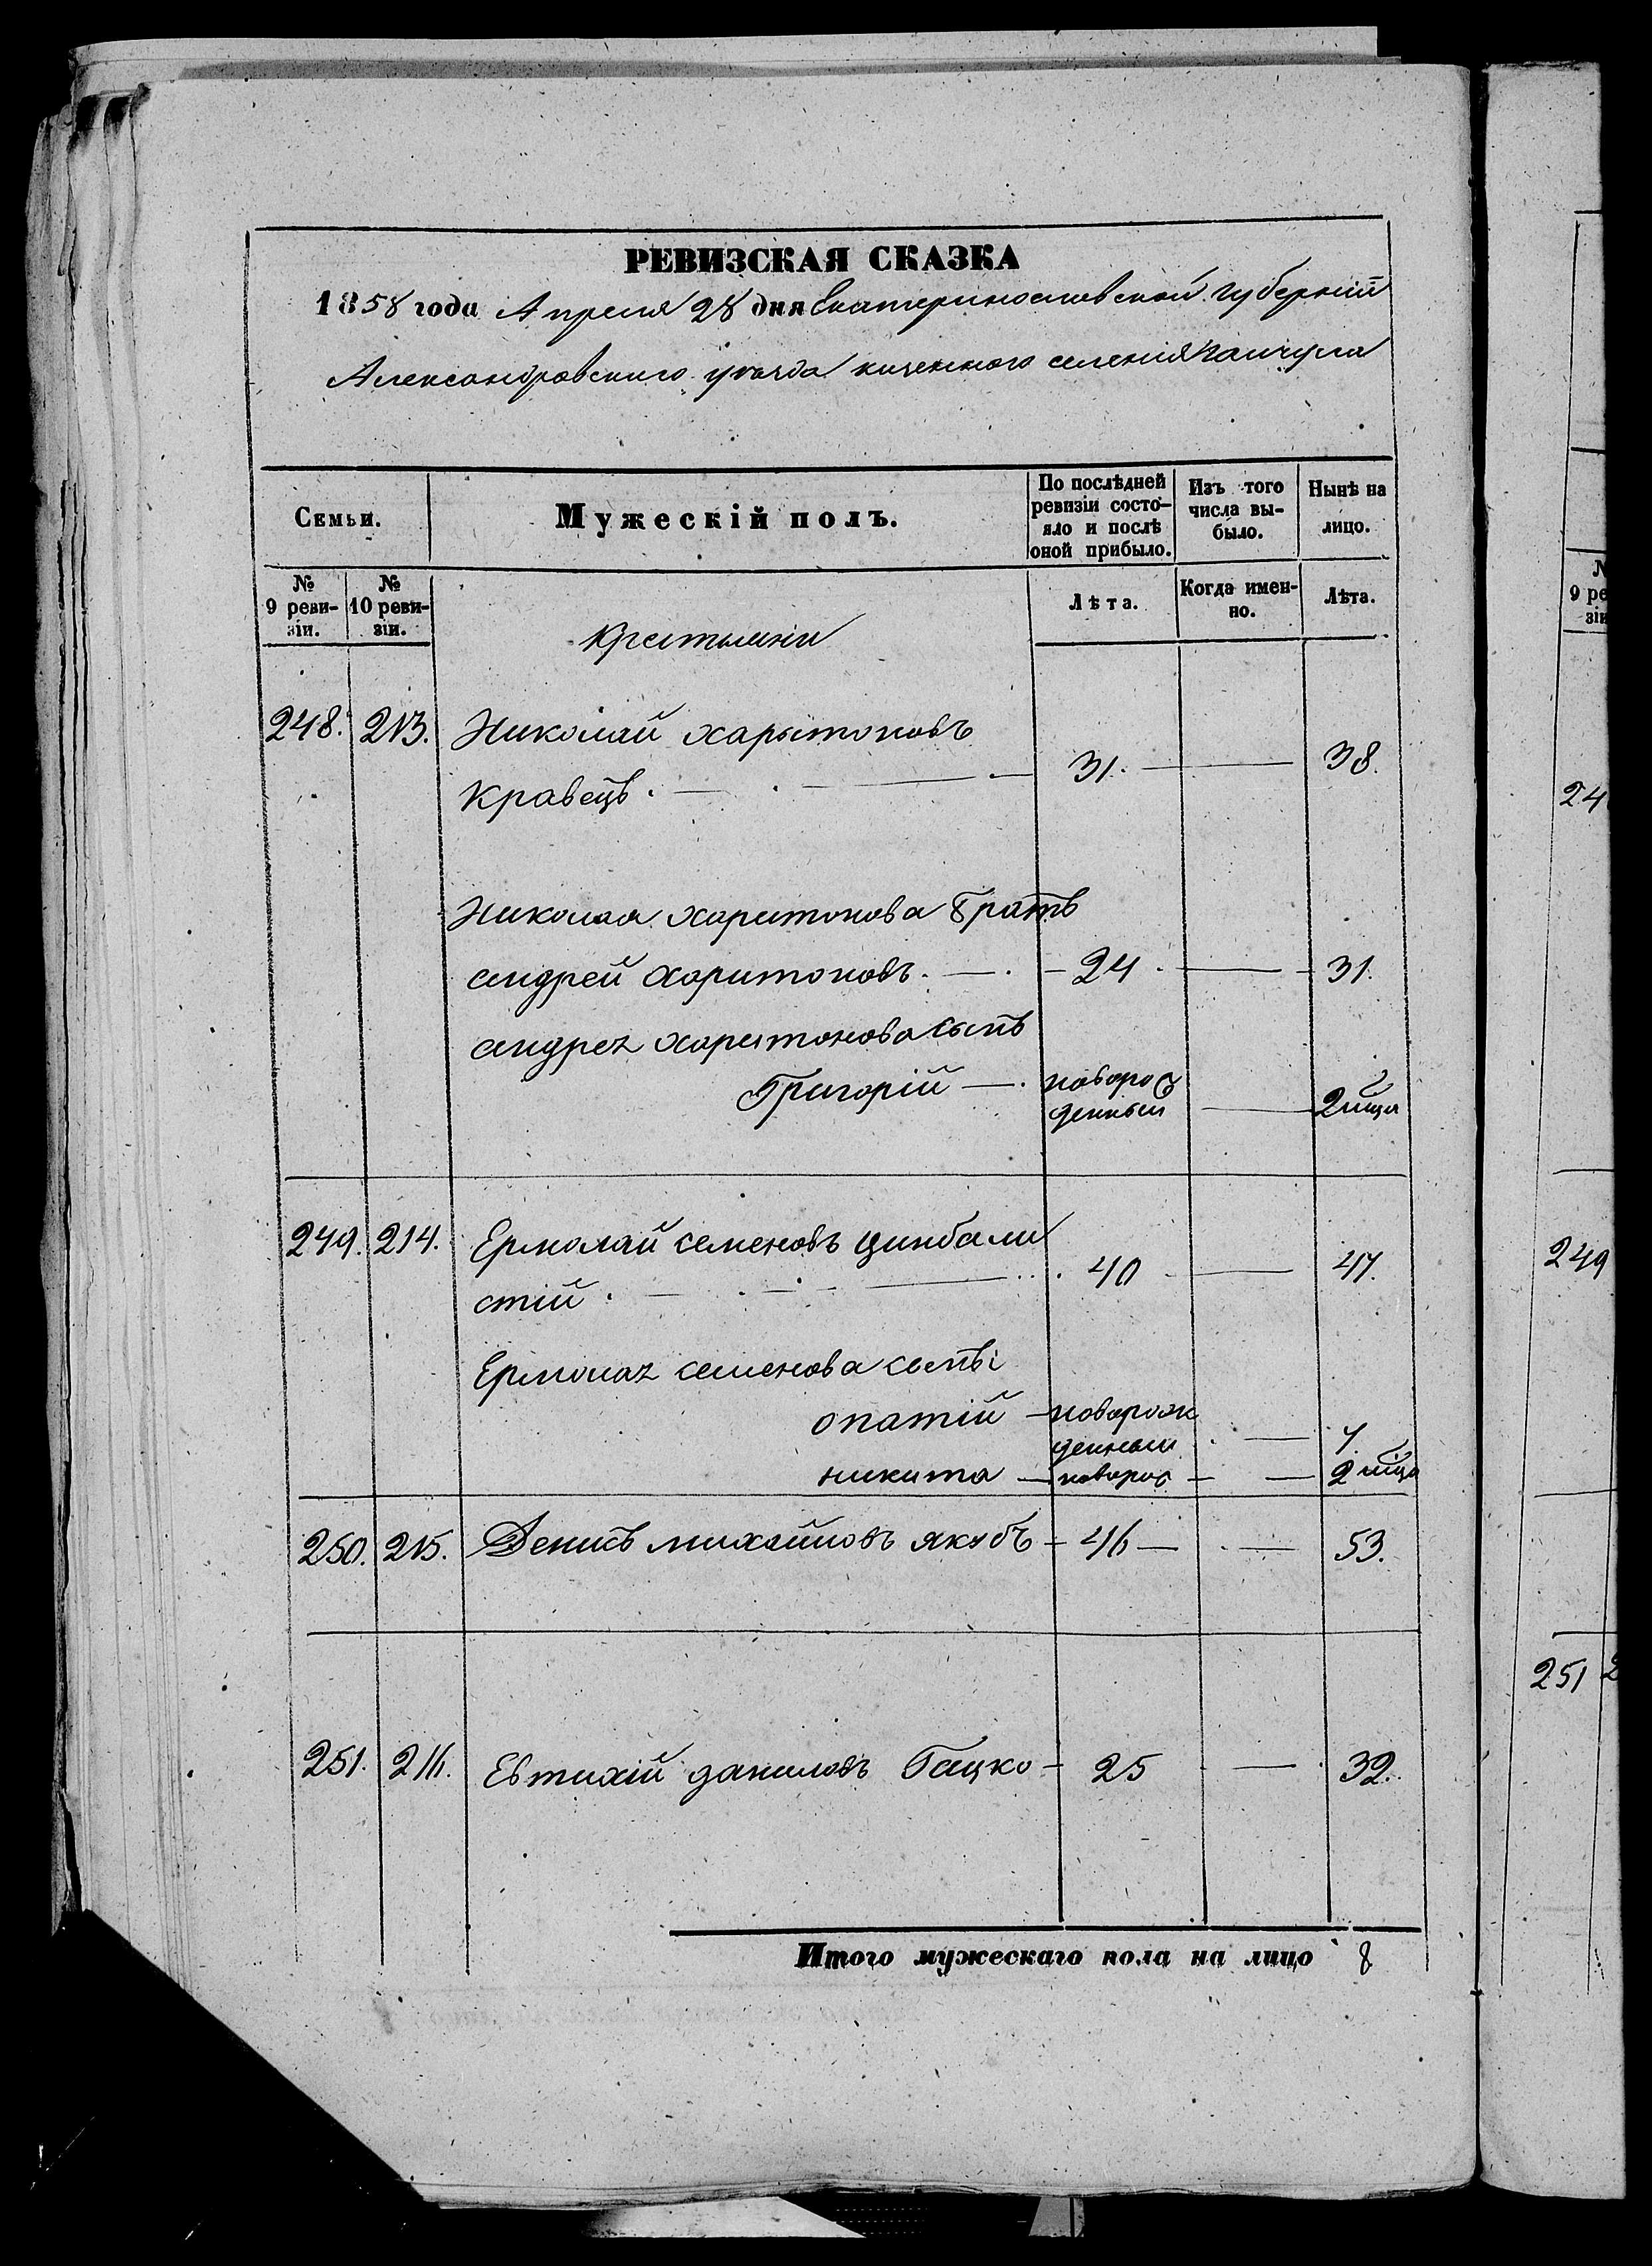 РЕВИЗСКАЯ СКАЗКА
1858 года Апреля 28 дня Екатеринославской губернии
Александровского уезда казенного селения Камчула
Семьи.
Мужескій полъ.
По послѣдней ревизіи состо-
яло и послѣ
оной прибыло.
Изъ того
числа вы-
было.
Нынѣ на
лицо.
№ 9 реви-
зіи.
№ 10 реви-
зіи.
Лѣта.
Когда имен-
но.
Лѣта.
Крестьяни
248. 213. Николай харытоновъ
Кравецъ. 31. 38.
Николая харитонова братъ
андрей харитоновъ. 24. 31.
андрея харитонова сынъ
Григорій новорож
денный 2 мца
249. 214. Ермолай семеновъ цинбали
стій. 40 47.
Ермолая семенова сынъі
опатій новорож
денный
никита новорож 2 мца
250. 215. Денисъ михайловъ якубъ 46 53.
251. 216. Евтихій даниловъ Гацко 25 32.
Итого мужескаго пола на лицо 8
№
9 ре
зіи
24
249
251 2